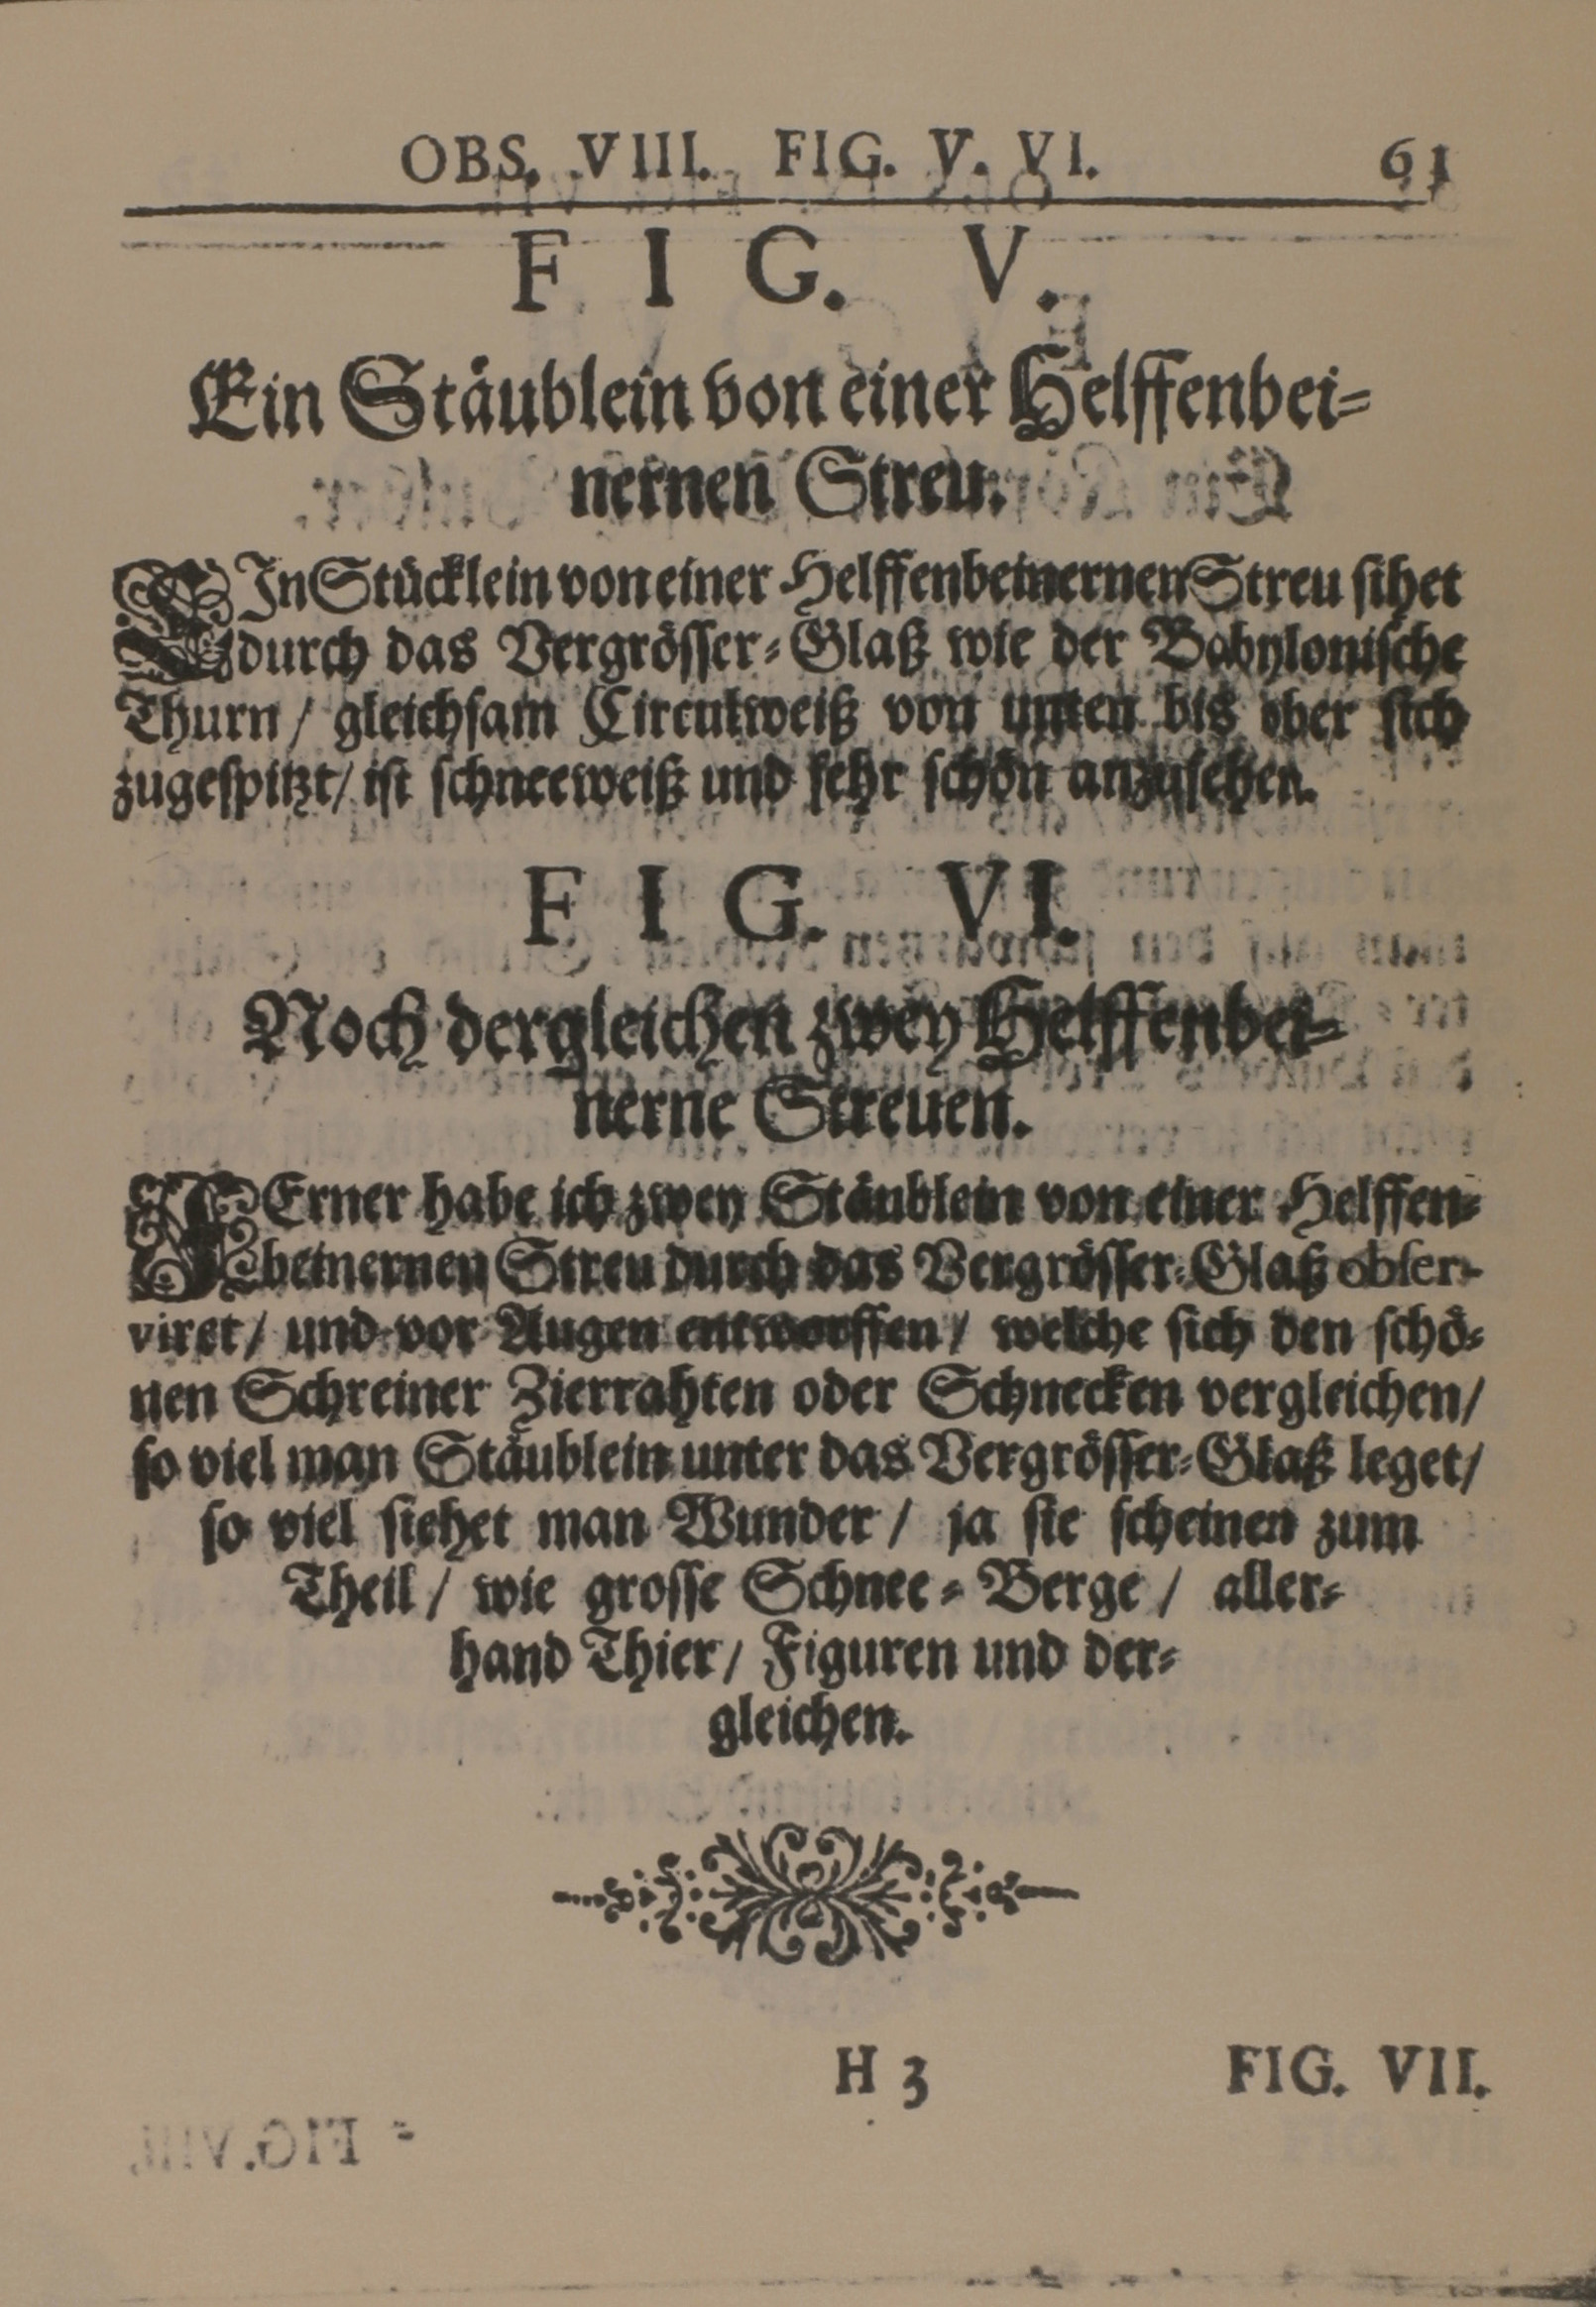 OBS. VIII. FIG. V. VI. 61
FIG. V.
Ein Stäublein von einer Helffenbei-
nernen Streu.
EIn Stücklein von einer Helffenbeinernen Streu sihet
durch das Vergrösser-Glaß wie der Babylonische
Thurn / gleichsam Circulweiß von unten bis ober sich
zugespitzt / ist schneeweiß und sehr schön anzusehen.
FIG. VI.
Noch dergleichen zwey Helffenbei-
nerne Streuen.
FErner habe ich zwey Stäublein von einer Helffen-
beinernen Streu durch das Vergrösser-Glaß obser-
viret / und vor Augen entworffen / welche sich den schö-
nen Schreiner Zierrahten oder Schnecken vergleichen /
so viel man Stäublein unter das Vergrösser-Glaß leget /
so viel siehet man Wunder / ja sie scheinen zum
Theil / wie grosse Schnee-Berge / aller-
hand Thier / Figuren und der-
gleichen.
H 3 FIG. VII.